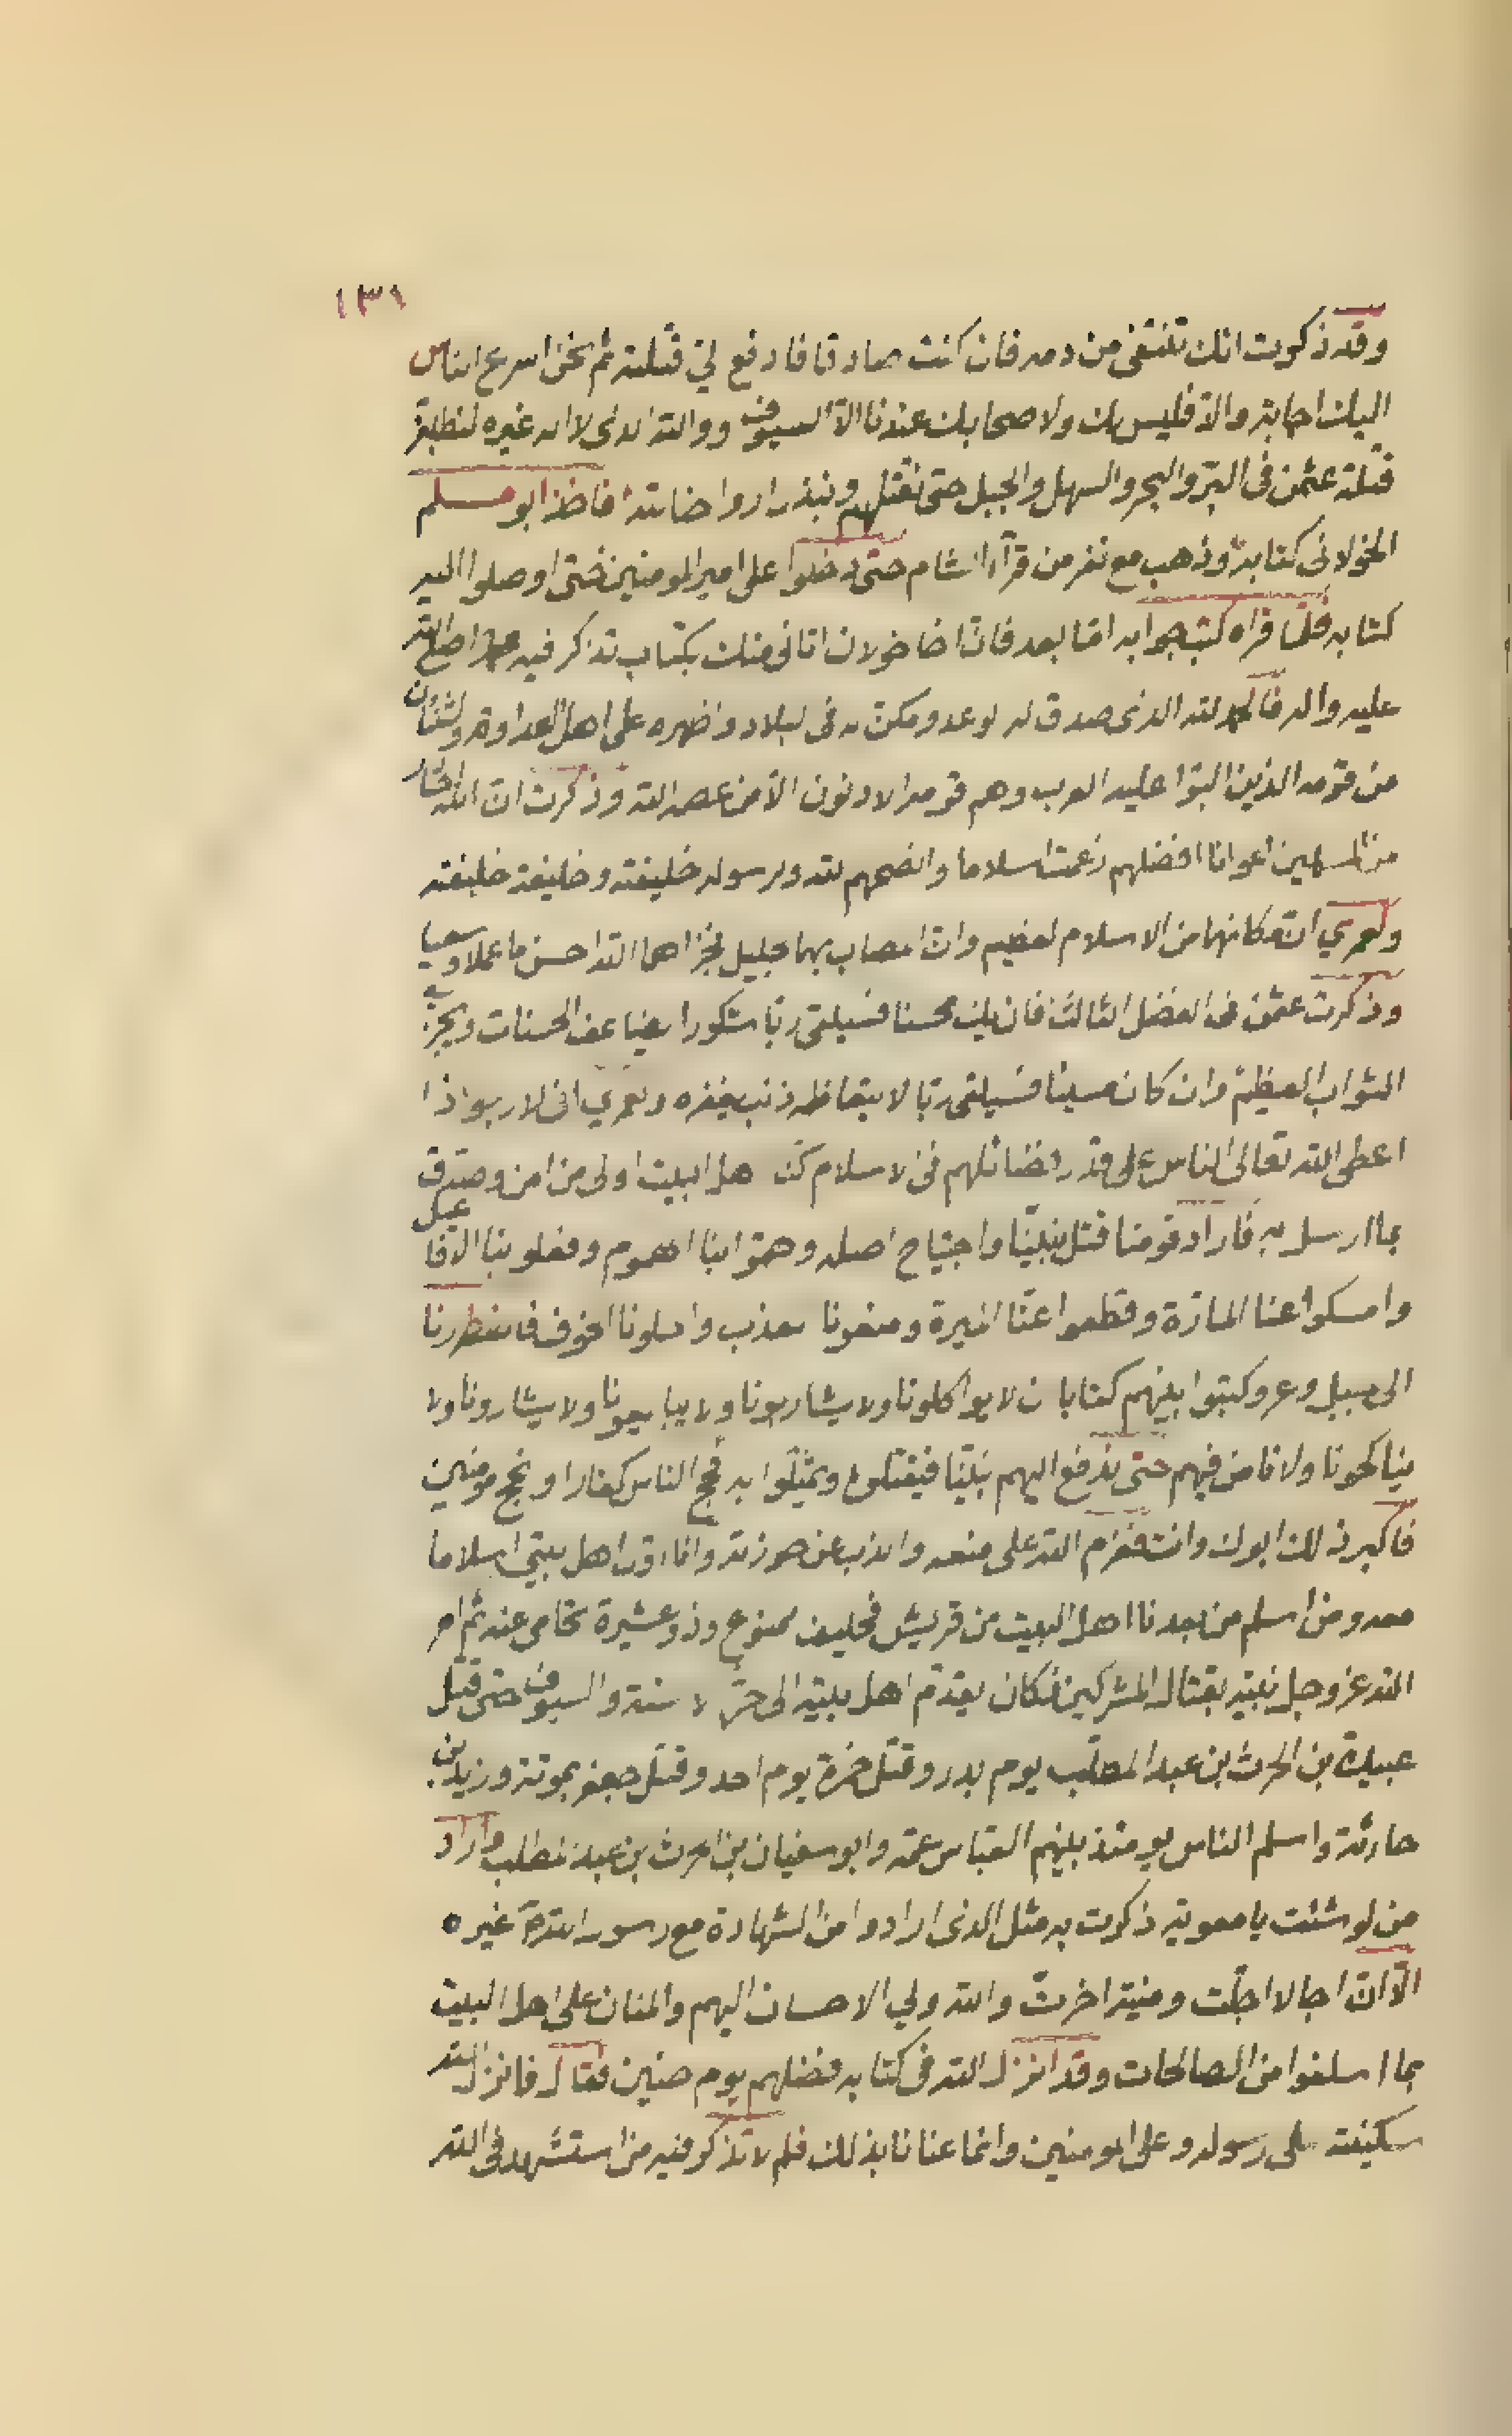 ١٣١
وقد ذكرت انك تنتفى من دمه فان كنت صادقا فادفع لي قتلته ثم نحن اسرع الناس
اليك اجابة والا فليس لك ولاصحابك عندنا الا السيوف ووالله الذى لا اله غيره لنطلبن
قتلة عثمن فى البر والبحر والسهل والجبل حتى نقتلهم و ارواحنا بالله فاخذ ابو مسلم
الخولانى كتابه وذهب مع نفر من قرآء الشام حتى دخلوا على امير المومنين حتى اوصلوا اليه
كتابه فلما قراه كتب جوابه اما بعد فان اخا خولان اتانى منك بكتاب تذكر فيه الله
عليه واله فالحمد لله الذى صدق له لوعد ومكن له فى لبلاد واظهره على اهل العداوة والشنأن
من قومه الذين البوا عليه العرب وهم قومه الادنون الا من عصمه الله وذكرت ان الله اختار
من المسلمين اعوانا افضلهم زعمت اسلاما وانصحهم لله ولرسوله خليفته وخليفة خليفته
ولعمري ان مكانهما من الاسلام لعظيم وان المصاب بهما جليل فجزاهما الله احسن ما عملا وسعيا
وذكرت عثمن فى الفضل الثالث فان يك محسنا فسيلقى ربا شكورا يضاعف الحسنات ويجزي
الثواب العظيم وان كان مسيئا فسيلقى ربا لا يتعاظمه ذنب يغفره ولعمري انى لارجو اذا
اعطى الله تعالى الناس على قدر فضائلهم فى لاسلام كنا هل البيت اولى من امن وصدق
بما ارسل به فاراد قومنا قتل نبينا واجتياح اصله وهموا بنا الهموم وفعلوا بنا الافاعيل
وامسكوا عنا المادة وقطعوا عنا الميرة ومنعونا لعذب واحلونا الخوف فاضطررنا
الى جبل وعر وكتبوا بينهم كتابا ن لا يواكلونا ولا يشاربونا ولا يبايعونا ولا يشارونا ولا
يناكحونا ولا نامن فيهم حتى ندفع اليهم نبينا فيقتلوه ويمثلوا به فحج الناس كفارا ونحج مومنين
فاكبر ذلك ابوك وانت فعزم الله على منعه والذب عن حوزته وانا اول اهل بيتي اسلاما
معه ومن اسلم من بعدنا اهل البيت من قريش فحليف ممنوع وذو عشيرة تحامى عنه ثم امر
الله عز وجل نبيه بقتال المشركين فكان يقدم اهل بيته الى حر لاسنة والسيوف حتى قتل
عبيدة بن الحرث بن عبد المطلب يوم بدر وقتل حمزة يوم احد وقتل جعفر بموتة وزيد بن
حارثة واسلم الناس يومئذ بينهم العباس عمه وابو سفيان بن الحرث بن عبد لمطلب واراد
من لو شئت يا معوية ذكرت به مثل الذى ارادوا من الشهادة مع رسول الله غير مرة
الا ان اجالا اجلت ومنية اخرت والله ولي الاحسان اليهم والمنان على اهل البيت
بما اسلفوا من الصالحات وقد انزل الله فى كتابه فضلهم يوم حنين فقال فانزل الله
سكينته على رسوله وعلى المومنين وانما عنانا بذلك فلم لا تذكر فيه من استشهد فى الله